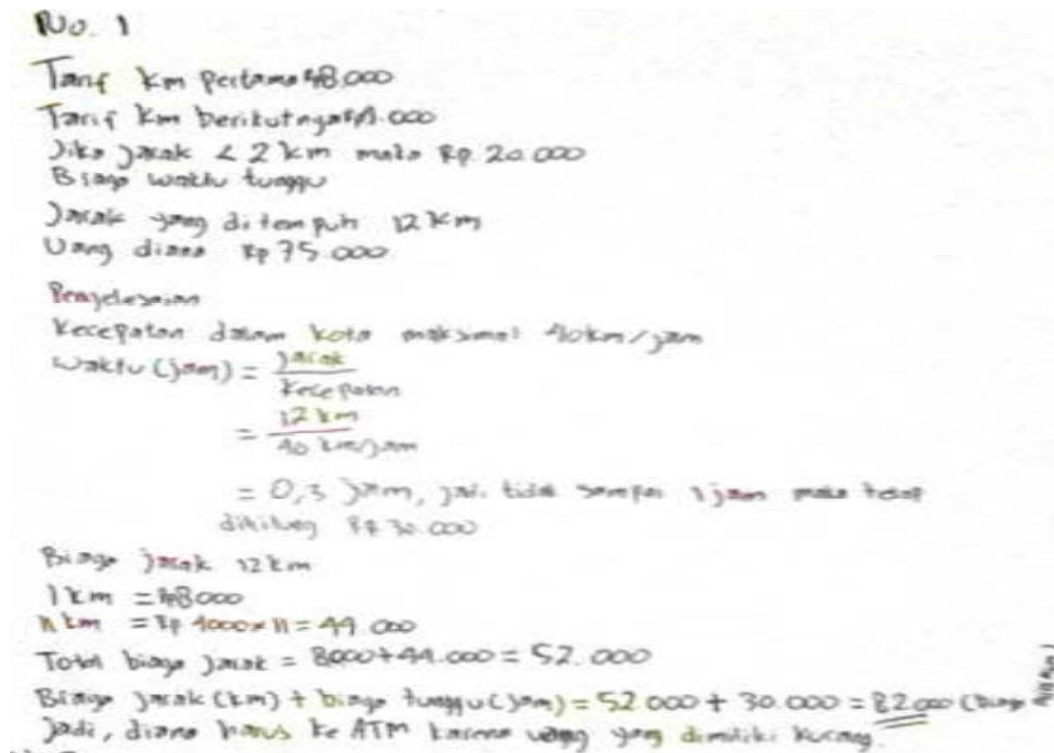 No. 1
Tarif km pertama Rp8.000
Tarif km berikutnya Rp4.000
Jika jarak < 2 km maka Rp. 20.000
Biaya waktu tunggu
Jarak yang ditempuh 12 km
Uang diana Rp 75.000
Penyelesaian
Kecepatan dalam kota maksimal 40km/jam
Waktu (jam) = jarak
Kecepatan
= 12 km
40 km/jam
= 0,3 jam, jadi tidak sampai 1 jam maka tetap
dihitung Rp 30.000
Biaya jarak 12 km
1 km = Rp8000
11 km = Rp 4000 x 11 = 44.000
Total biaya jarak = 8000 + 44.000 = 52.000
Biaya jarak (km) + biaya tunggu (jam) = 52.000 + 30.000 = 82.000 (biaya
Jadi, diana harus ke ATM karena uang yang dimiliki kurang.